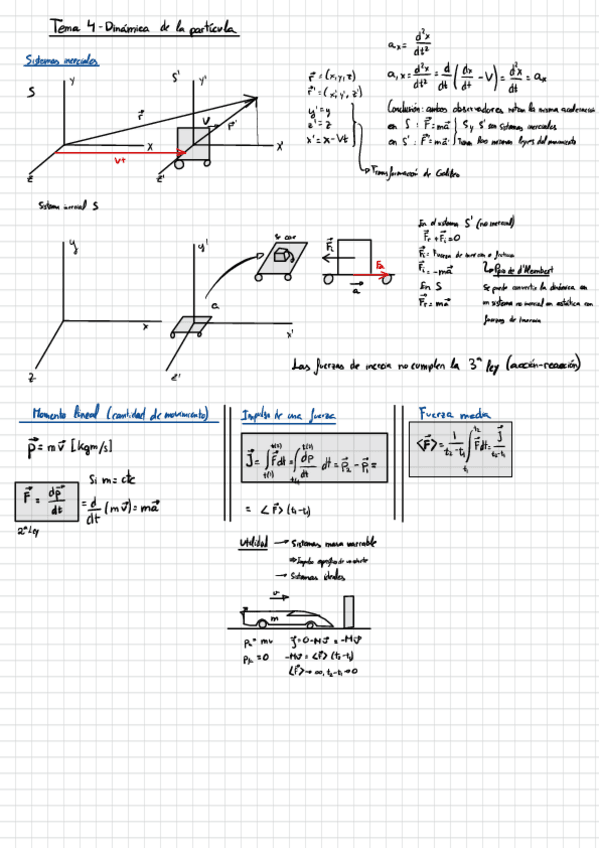 Tema 4 - Dinámica de la partícula
Sistemas inerciales
S
y
S'
y'
r⃗
r⃗'
V
Vt
x
x'
z
z'
r⃗ = (x, y, z)
r⃗' = (x', y', z')
y' = y
z' = z
x' = x - Vt
Transformación de Galileo
aₓ = d²x/dt²
a'ₓ = d²x/dt² = d/dt (dx/dt - V) = d²x/dt = aₓ
Conclusión: ambos observadores miden la misma aceleración
en S : F⃗ = ma⃗ } S y S' son sistemas inerciales
en S' : F⃗ = ma⃗ } Tienen las mismas leyes del movimiento
Sistema inercial S
y
y'
a
x
x'
z
z'
F⃗ᵢ
a⃗
En el sistema S' (no inercial)
F⃗ᵣ + F⃗ᵢ = 0
F⃗ᵢ = Fuerza de inercia o ficticia
F⃗ᵢ = -ma⃗
Ppio de d'Alembert
En S
F⃗ᵣ = ma⃗
Se puede convertir la dinámica en
un sistema no inercial en estática con
fuerzas de inercia
Las fuerzas de inercia no cumplen la 3ª ley (acción-reacción)
Momento lineal (cantidad de movimiento)
p⃗ = mv⃗ [kgm/s]
Si m = cte
F⃗ = dp⃗/dt = d/dt (mv⃗) = ma⃗
2ª Ley
Impulso de una fuerza
J⃗ = ∫ F⃗dt = ∫ dp⃗/dt dt = p⃗₂ - p⃗₁ =
= <F⃗> (t₂-t₁)
Fuerza media
<F⃗> = 1/(t₂-t₁) ∫ F⃗dt = J⃗/(t₂-t₁)
Utilidad → Sistemas masa variable
→ Sistemas ideales
v
m
= mv
J = 0 - Mv = -Mv
= 0
-Mv = <F⃗> (t₂-t₁)
<F⃗> → ∞, t₂-t₁ → 0